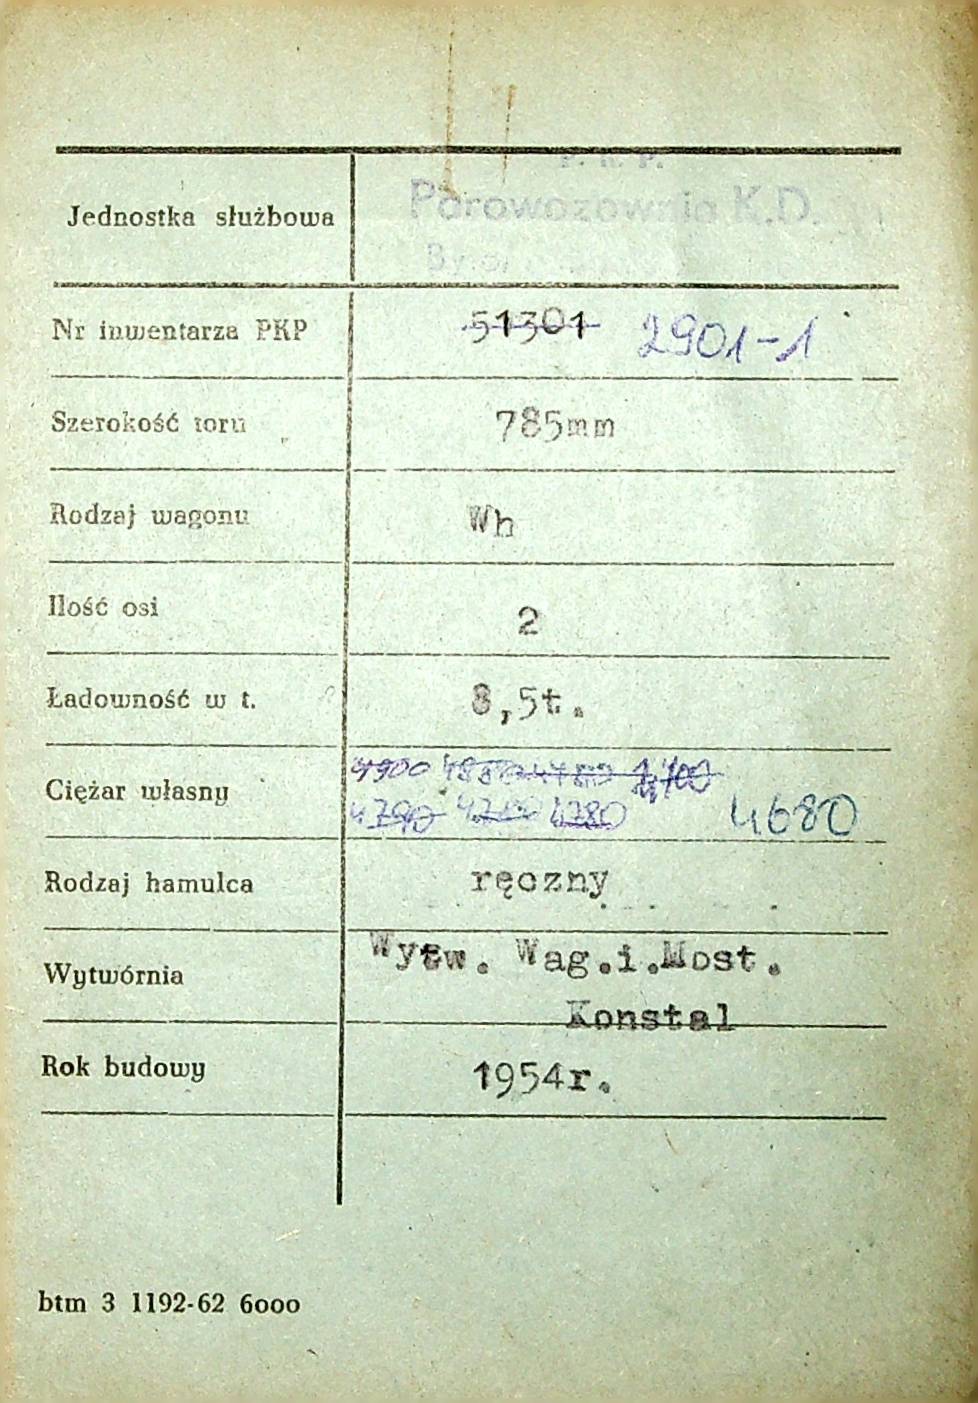 P. K. P.
Jednostka służbowa Parowozownia K.D.
Nr inwentarza PKP 51301 2901-1
Szerokość toru 785mm
Rodzaj wagonu Wh
Ilość osi 2
Ładowność w t. 8,5t.
4900
Ciężar własny
4790 4280 4680
Rodzaj hamulca ręczny
Wytw. Wag.i.Most.
Wytwórnia
Konstal
Rok budowy 1954r.
btm 3 1192-62 6000